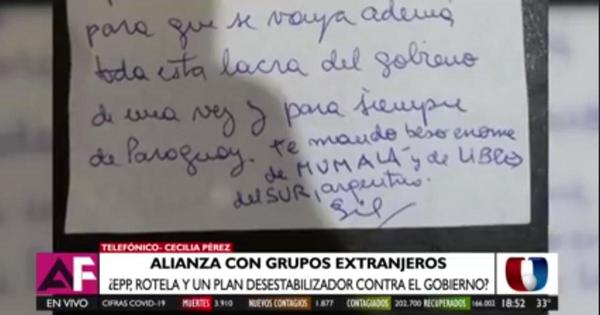 para que se vaya además
toda esta lacra del gobierno
de una vez y para siempre
de Paraguay. Te mando beso enorme
de MUMALA y de LIBRES
del SUR, argentino.
Gil
TELEFÓNICO- CECILIA PÉREZ
AF
ALIANZA CON GRUPOS EXTRANJEROS
¿EPP, ROTELA Y UN PLAN DESESTABILIZADOR CONTRA EL GOBIERNO?
U
EN VIVO CIFRAS COVID-19 MUERTES 3.910 NUEVOS CONTAGIOS 1.877 CONTAGIADOS 202.700 RECUPERADOS 166.002 18:52 33°